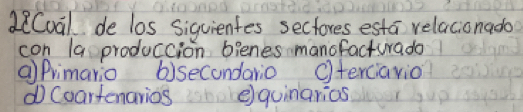 2¿Cuál de los siguientes sectores está relacionado
con la producción bienes manofacturado
a) Primario b) secundario c) terciario
d) Coartenarios e) quinarios